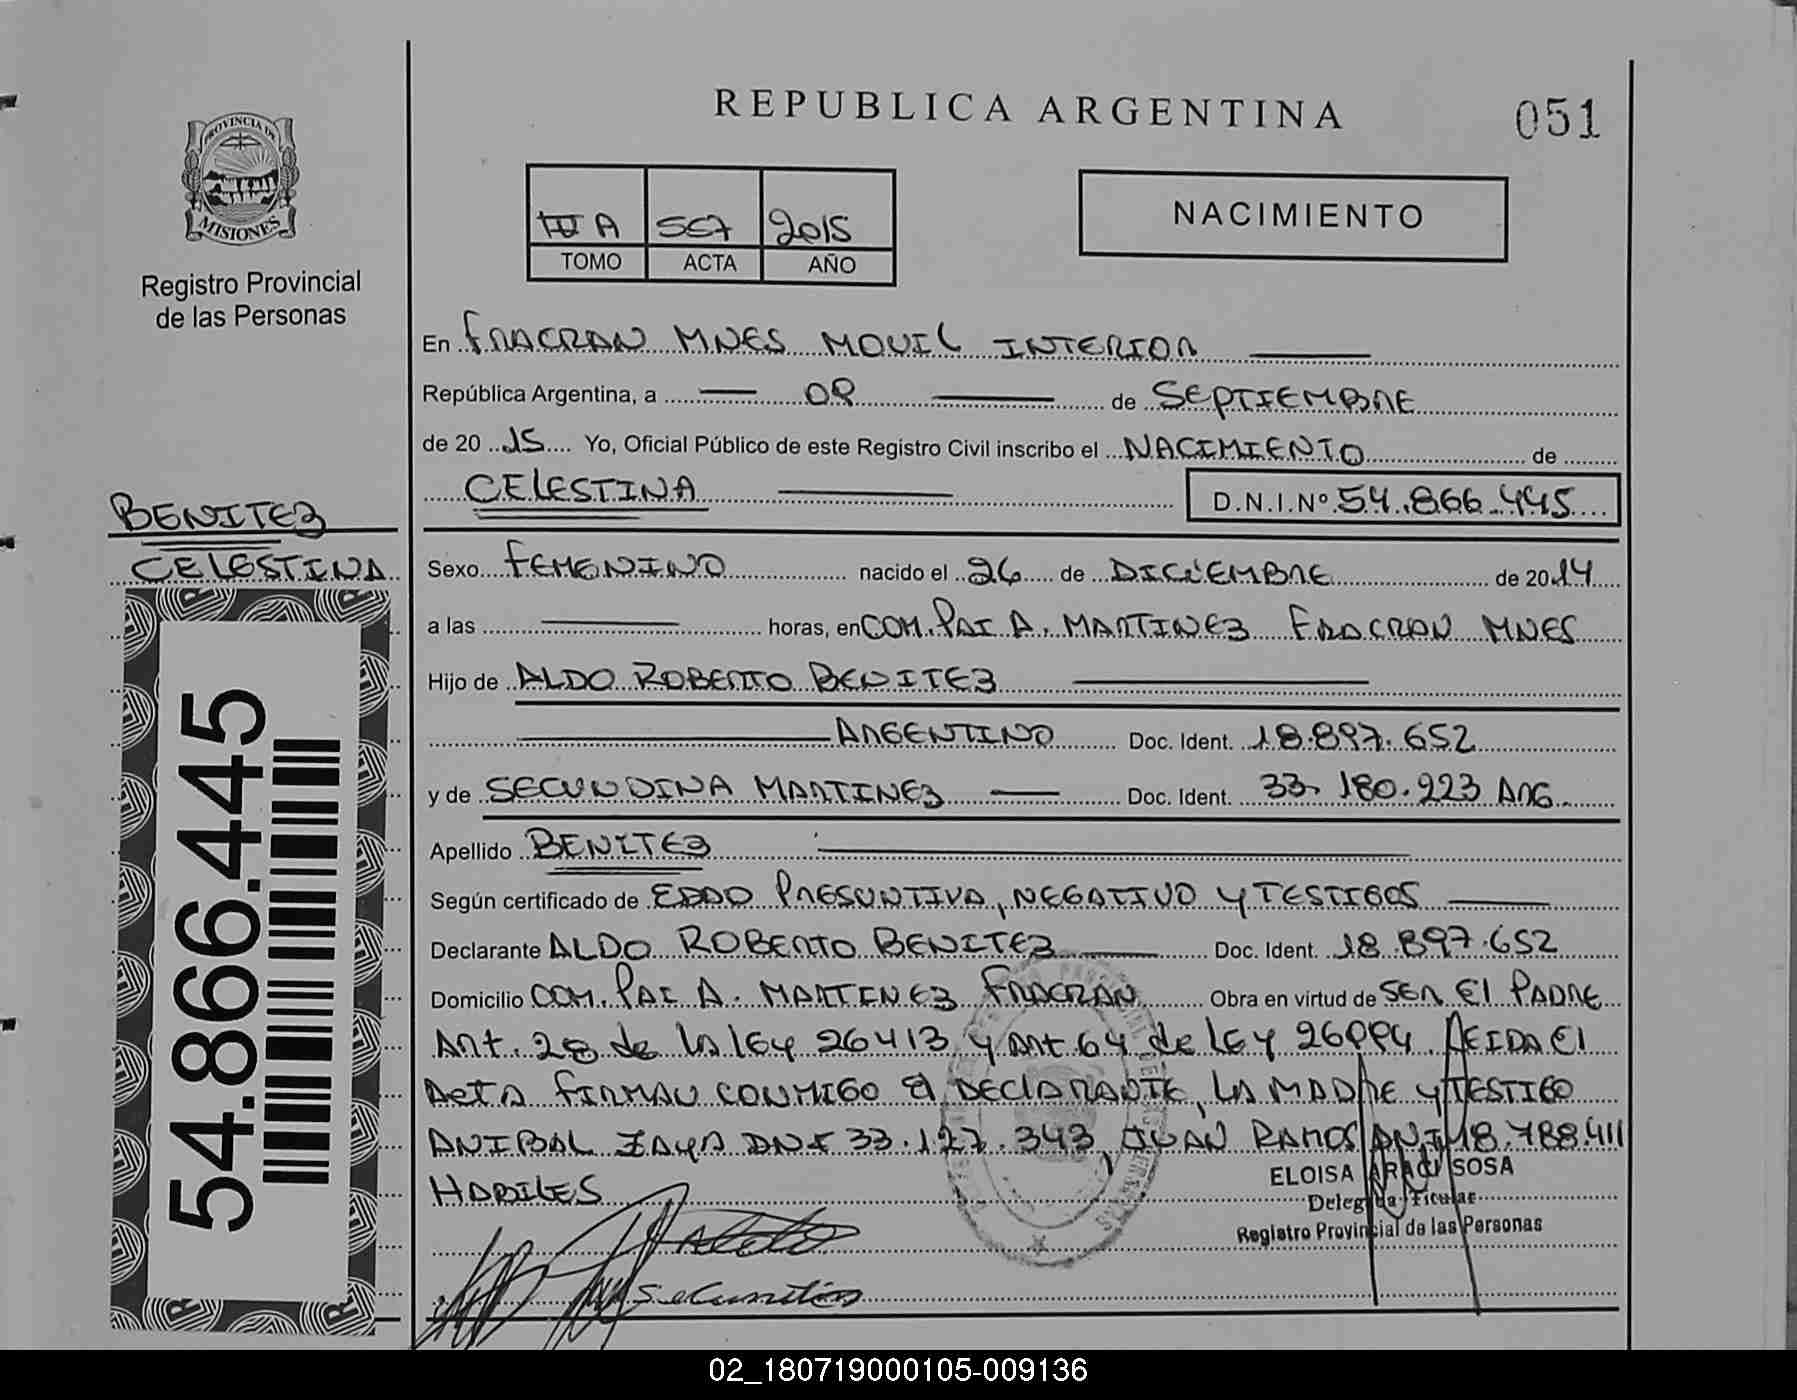 REPUBLICA ARGENTINA
051
PROVINCIA DE
MISIONES
Registro Provincial
de las Personas
III A 557 2015
TOMO ACTA AÑO
NACIMIENTO
En FRACRAN MNES MOVIL INTERIOR
República Argentina, a 08 de SEPTIEMBRE
de 20 15 Yo, Oficial Público de este Registro Civil inscribo el NACIMIENTO de
CELESTINA D.N.I.Nº 54.866.445
BENITEZ
CELESTINA
Sexo FEMENINO nacido el 26 de DICIEMBRE de 2014
a las horas, en COM. PAI A. MARTINEZ FRACRAN MNES
Hijo de ALDO ROBERTO BENITEZ
ARGENTINO Doc. Ident. 18.897.652
y de SECUNDINA MARTINEZ Doc. Ident. 33.180.223 ARG.
Apellido BENITEZ
Según certificado de EDAD PRESUNTIVA, NEGATIVO Y TESTIGOS
Declarante ALDO ROBERTO BENITEZ Doc. Ident. 18.897.652
Domicilio COM. PAI A. MARTINEZ FRACRAN Obra en virtud de SER El PADRE
Art. 28 de la ley 26413 y Art. 64 de LEY 26994. LEIDA El
ActA FIRMAN CONMIGO El DECLARANTE, LA MADRE Y TESTIGO
ANIBAL ZAYA DNI 33.127.343, JUAN RAMOS DNI 18.788.411
HABILES
ELOISA ARACI SOSA
Delegada Titular
Registro Provincial de las Personas
54.866.445
02_180719000105-009136